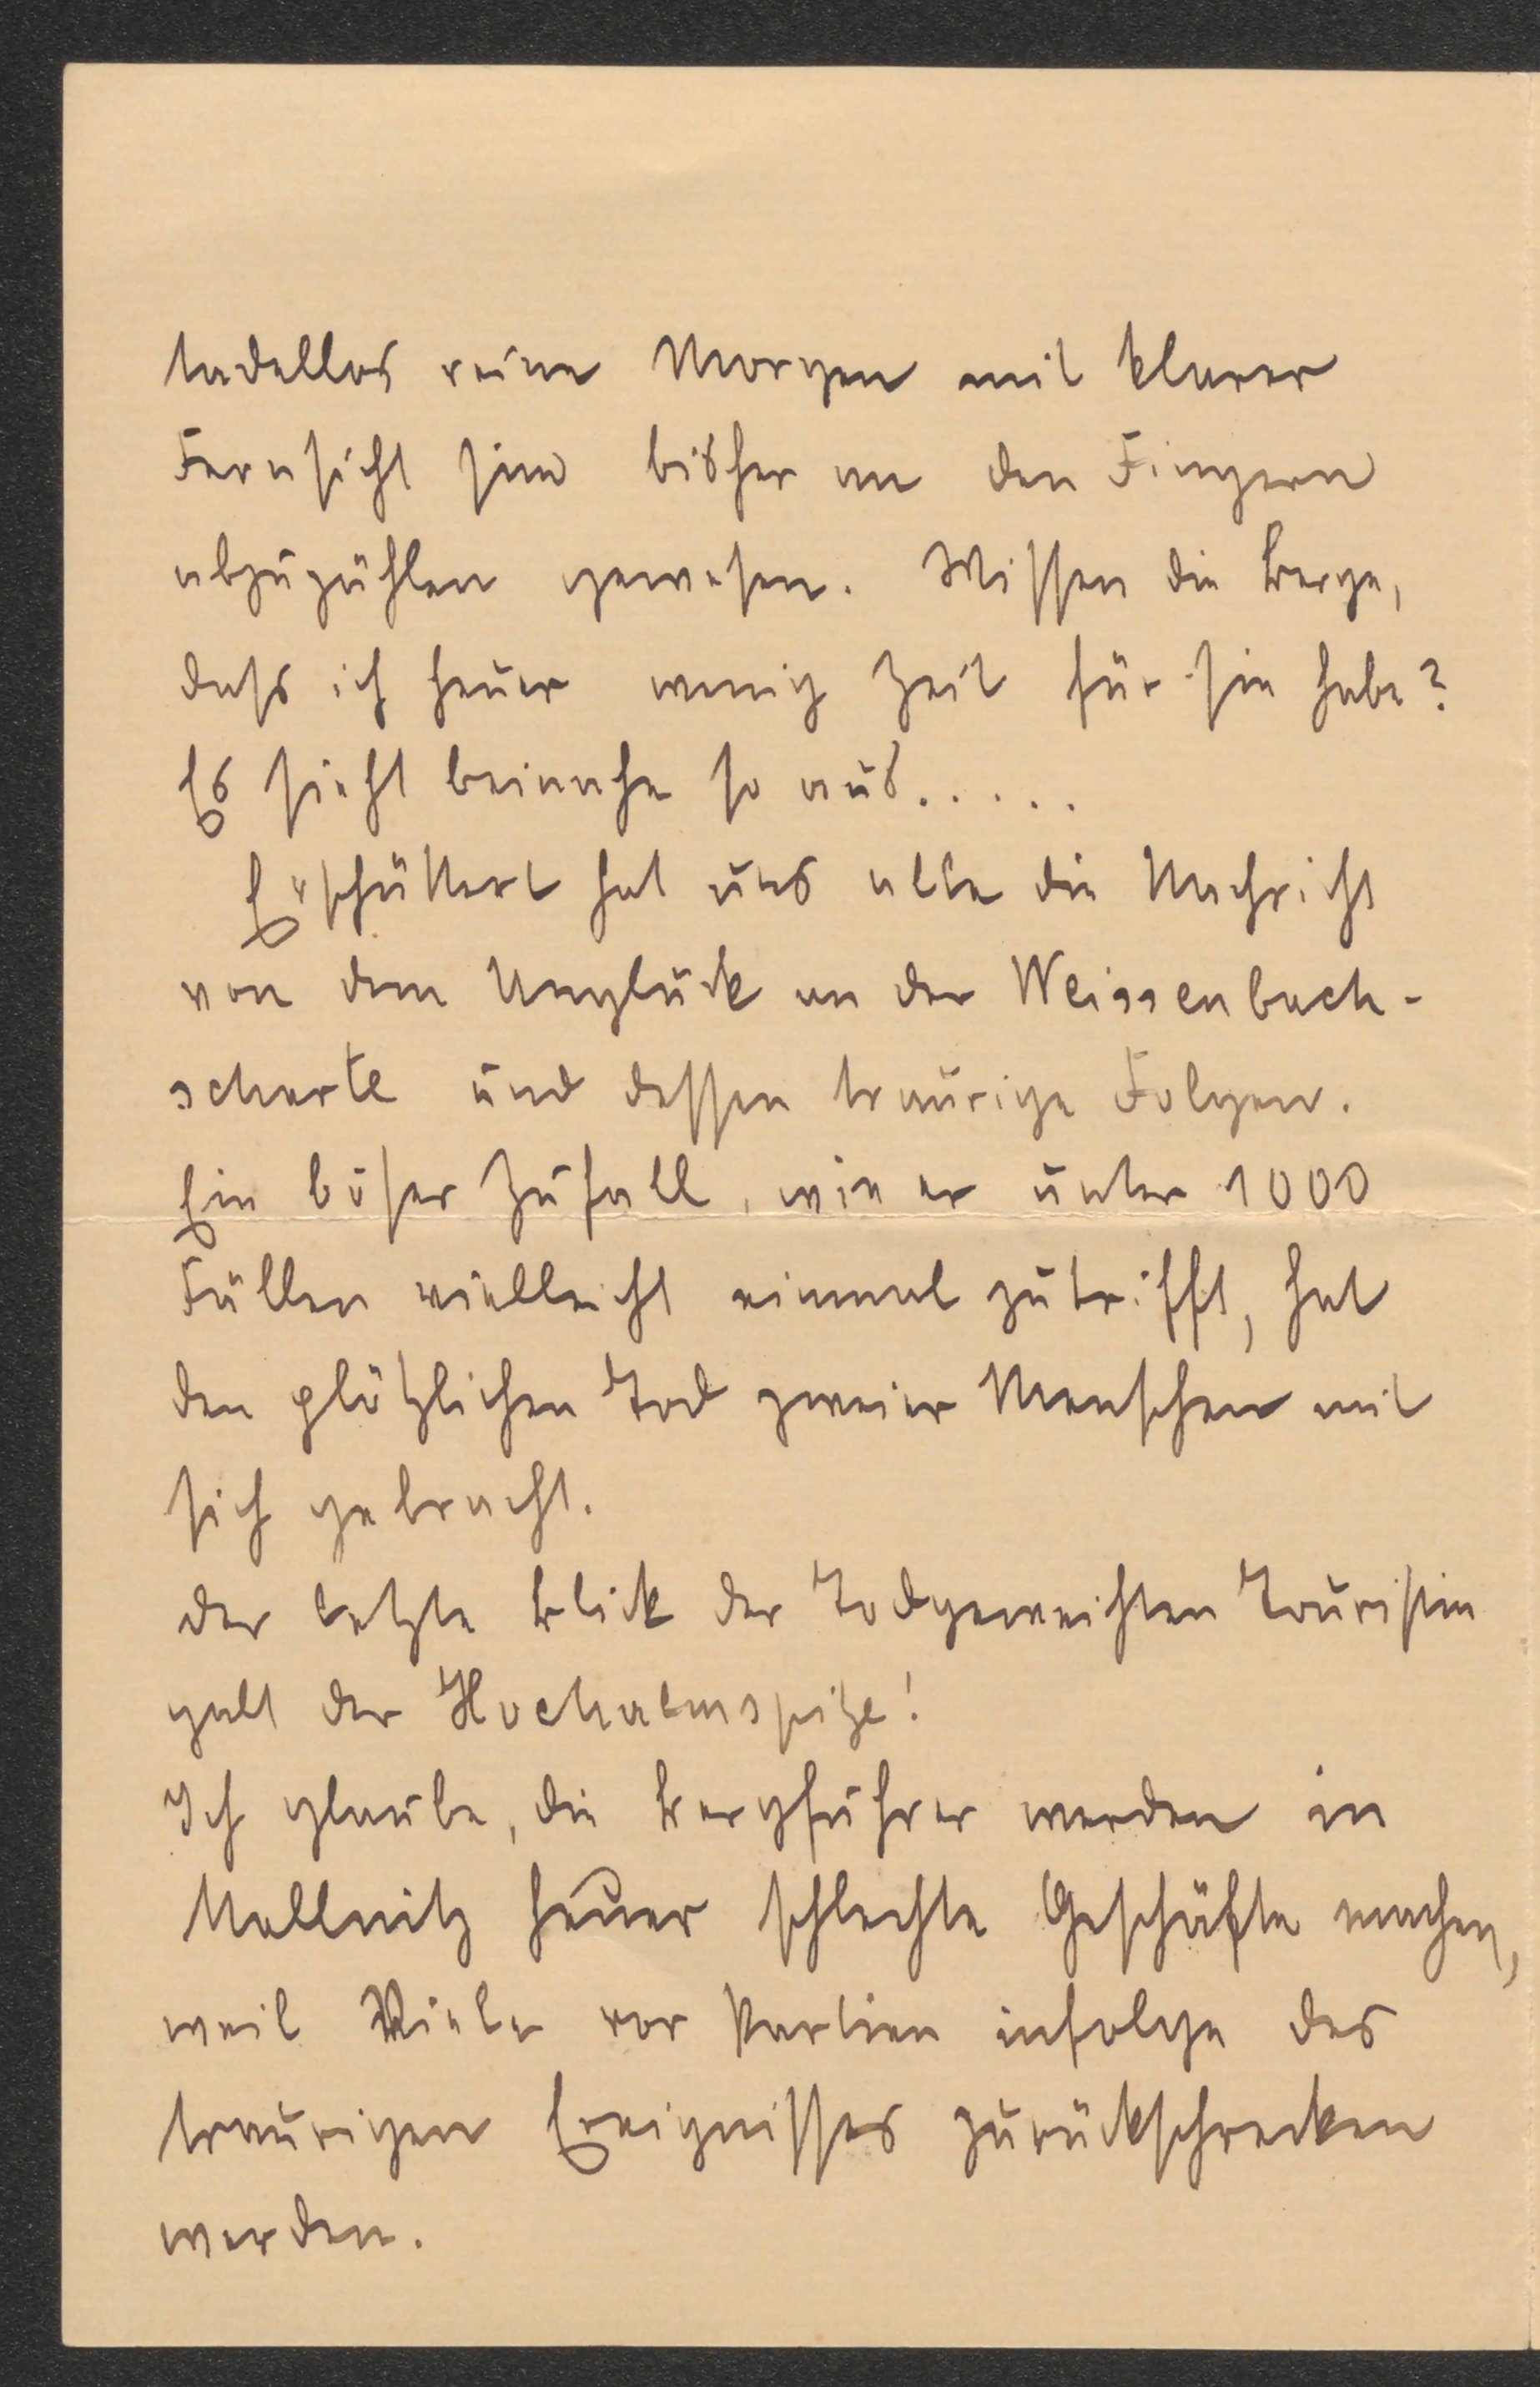 tadellos reine Morgen mit klarer
Fernsicht sind bisher an den Fingern
abzuzählen gewesen. Wissen die Berge,
dass ich heuer wenig Zeit für sie habe?
Es sieht beinahe so aus.....
Erschüttert hat uns alle die Nachricht
von dem Unglück an der Weissenbach-
scharte und dessen traurige Folgen.
Ein böser Zufall, wie er unter 1000
Fällen vielleicht einmal zutrifft, hat
den plötzlichen Tod zweier Menschen mit
sich gebracht.
Der letzte Blick der Todgeweihten Touristin
galt der Hochalmspitze!
Ich glaube, die Bergführer werden in
Mallnitz heuer schlechte Geschäfte machen,
weil Viele vor Partien infolge des
traurigen Ereignisses zurückschrecken
werden.